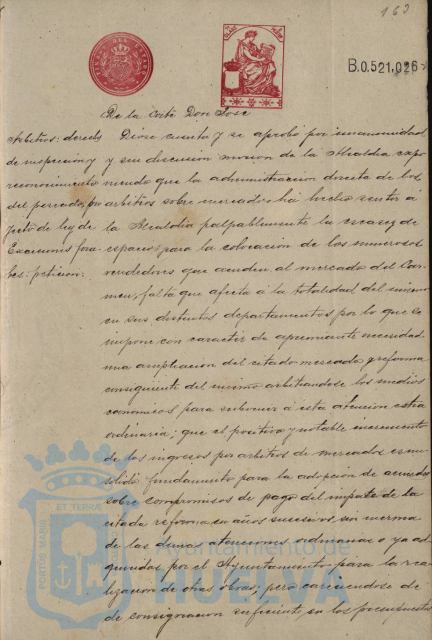 163
B.0.521,026
De la Corte Don José
Arbitrios: derechos
de inspección y
reconocimiento
del pescado, pro
yecto de ley de
Exacciones loca
les: petición:
Diose cuenta y se aprobó por unanimidad
y sin discusión moción de la Alcaldía expo
niendo que la administración directa de los
arbitrios sobre mercados ha hecho sentir á
la Alcaldía palpablemente la escasez de
espacios para la colocación de los numerosos
vendedores que acuden al mercado del Car
men, falta que afecta á la totalidad del mismo
en sus distintos departamentos por lo que se
impone con caracter de apremiante necesidad
una ampliación del citado mercado y reforma
consiguiente del mismo arbitrándose los medios
económicos para subvenir á esta atención extra
ordinaria: que el positivo y notable incremento
de los ingresos por arbitrios de mercados es un
sólido fundamento para la adopción de acuerdos
sobre compromisos de pago del importe de la
citada reforma en años sucesivos sin merma
de las demás atenciones ordinarias o ya ad
quiridas por el Ayuntamiento para la rea
lización de otras obras, pero careciéndose de
consignación suficiente en los presupuestos
PORTUS MARIS ET TERRAE
Ayuntamiento de
HUELVA